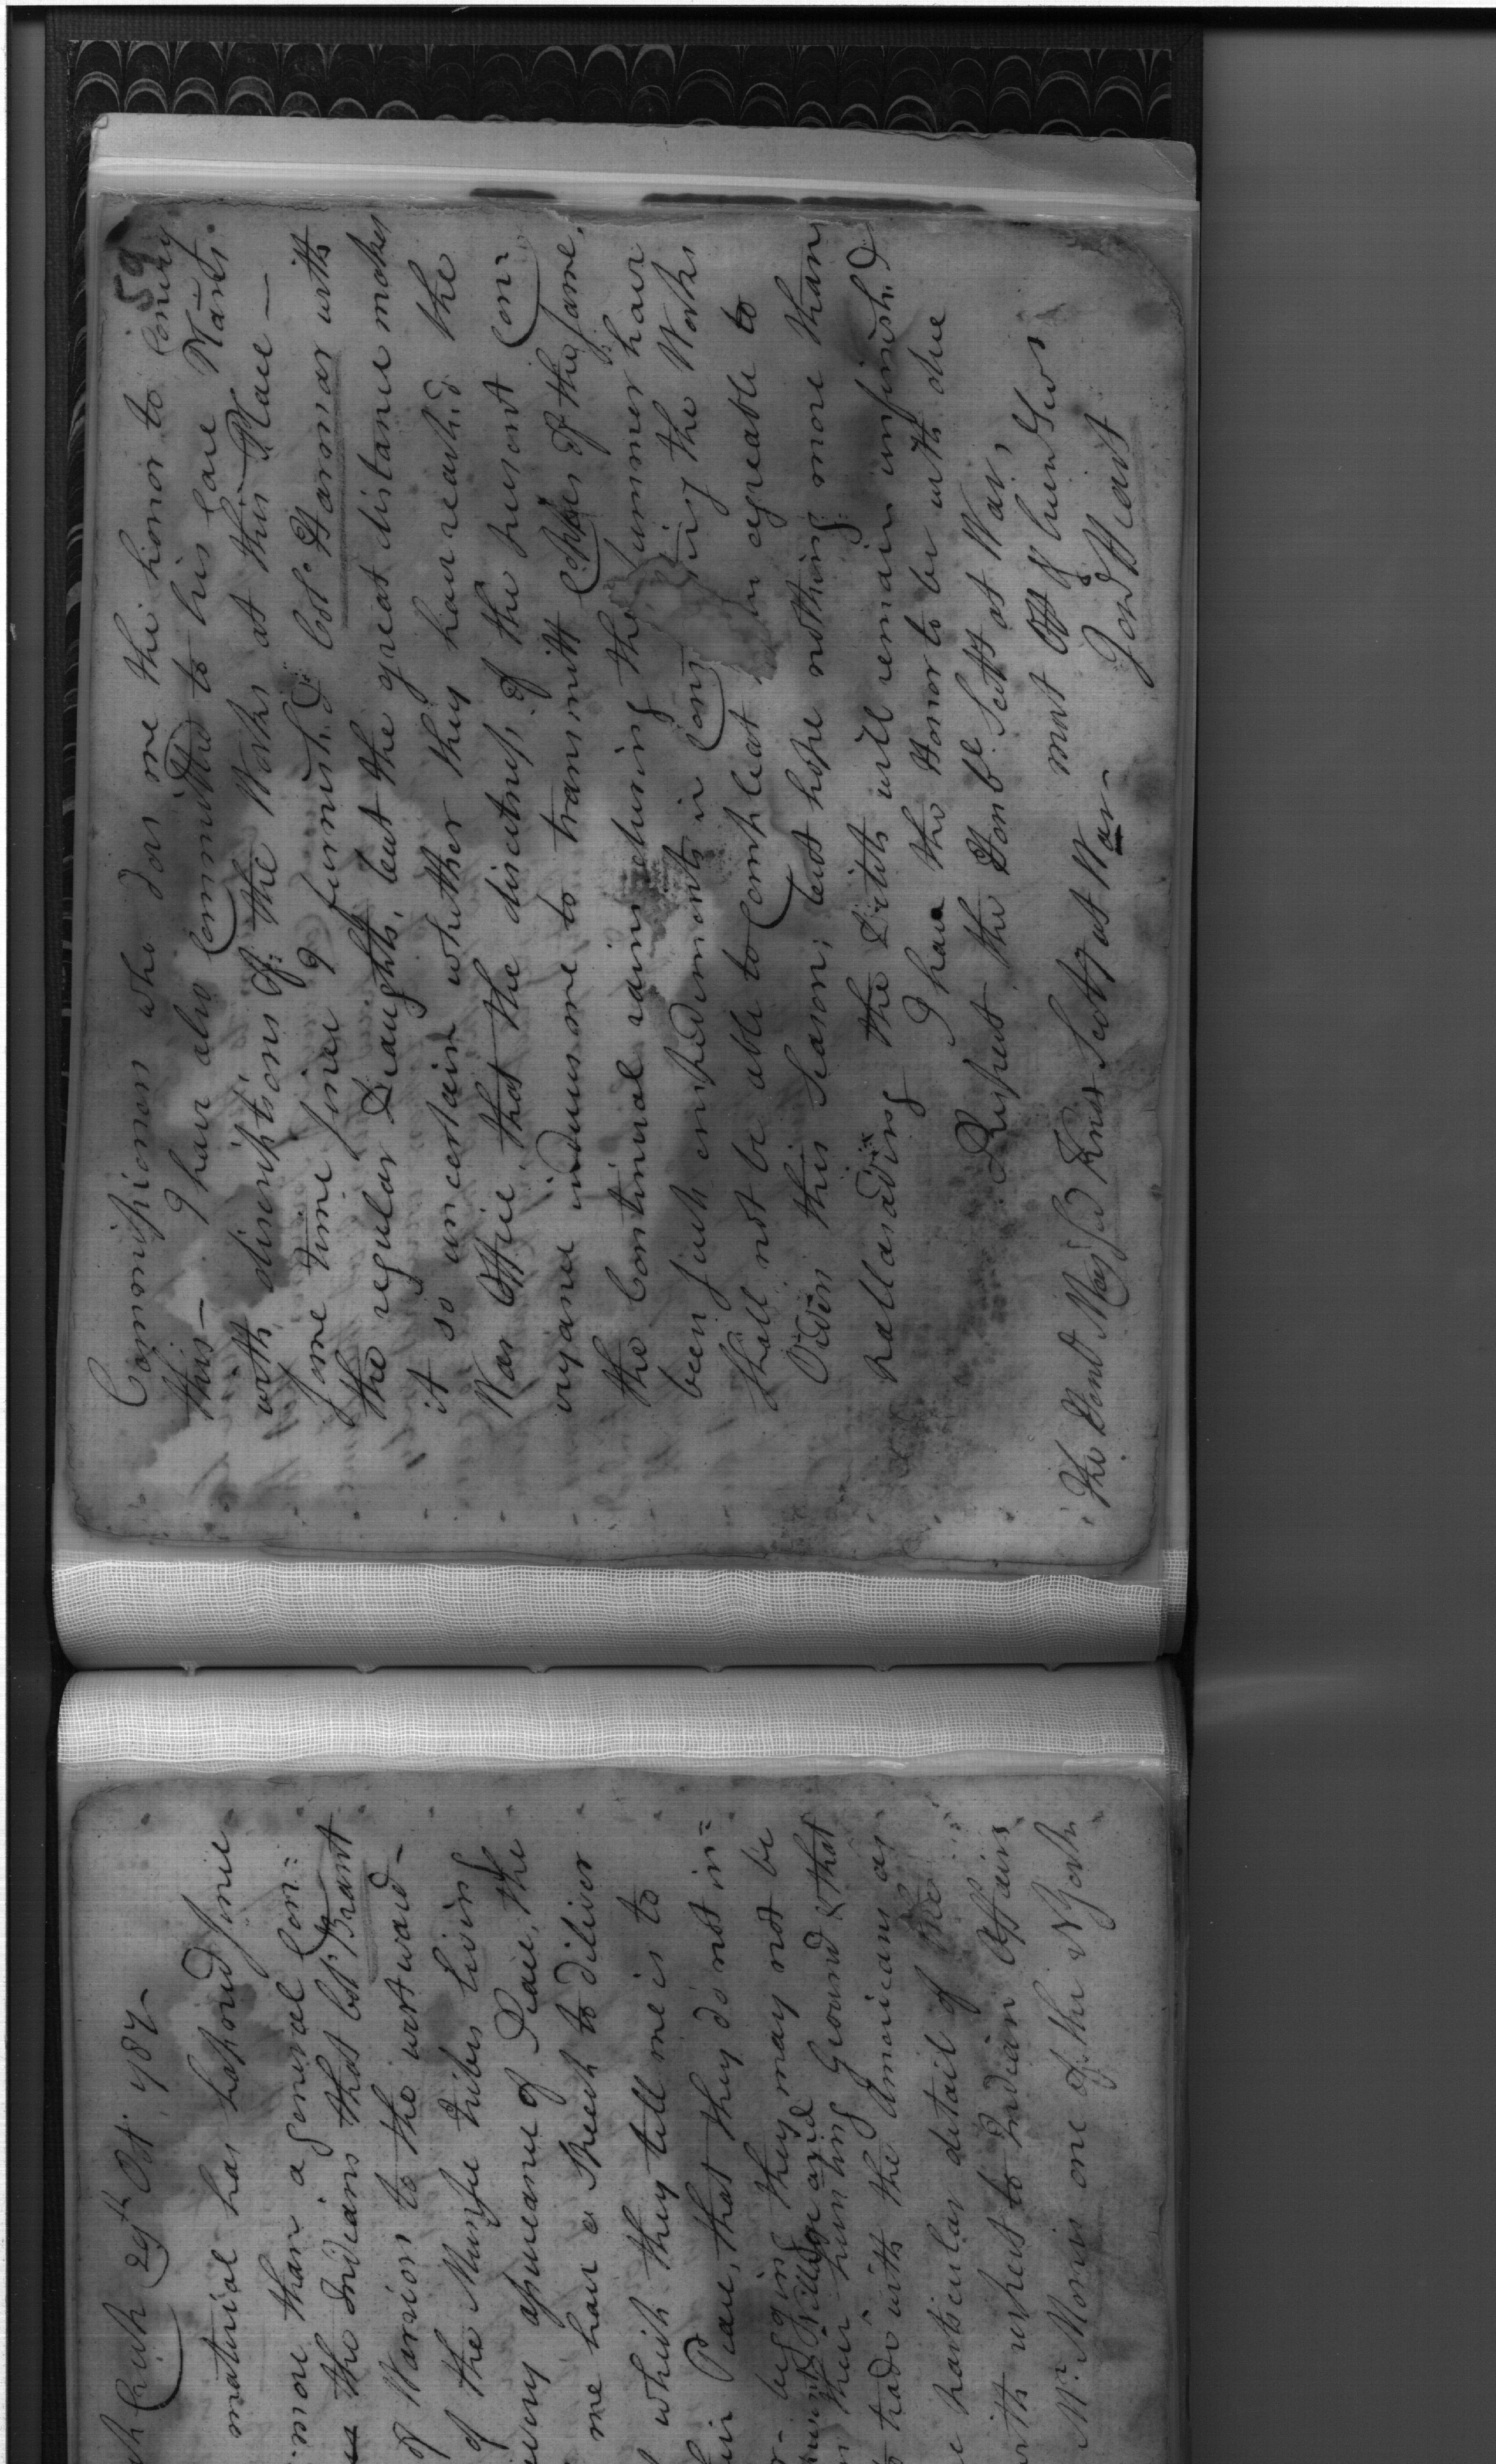 Creek 29th Oct. 1787-
material has hapened sine
more than a general Con=
the Indians that Col. Brant
of Warriors to the westward-
of the Munse tribes living
every apperance of Peace, the
me have a Speech to diliver
which they tell me is to
Peace, that they do not in=
beging they may not be
Village and
their hunting Ground & that
trade with the Americans as
particular detail of the
with respect to Indian Affairs
Mr. Morris one of the N York
59
Commissioners who does me the honor to convey
this-
I have also Committed to his care Plans
with discriptions of the Works at this Place-
some time since I furnish'd Col. Harmar with
the regular Draughts, but the great distance makes
it so uncertain whether they have reach'd the
War Office, that the discretness of the present Con=
veyance induces me to transmitt Coppies of the same,
the Continual rains during the summer have
been such impediments in Carrying the Works
shall not be able to Compleat agreable to
Order this Season; but hope nothing more than
pallasading the Ditch will remain unfinish'd
I have the Honor to be with due
Respect the Honble. Sectr at War,
most Obt. Hum Ser
Jond Heart
The Honl Maj Gl Knox Secty at War-